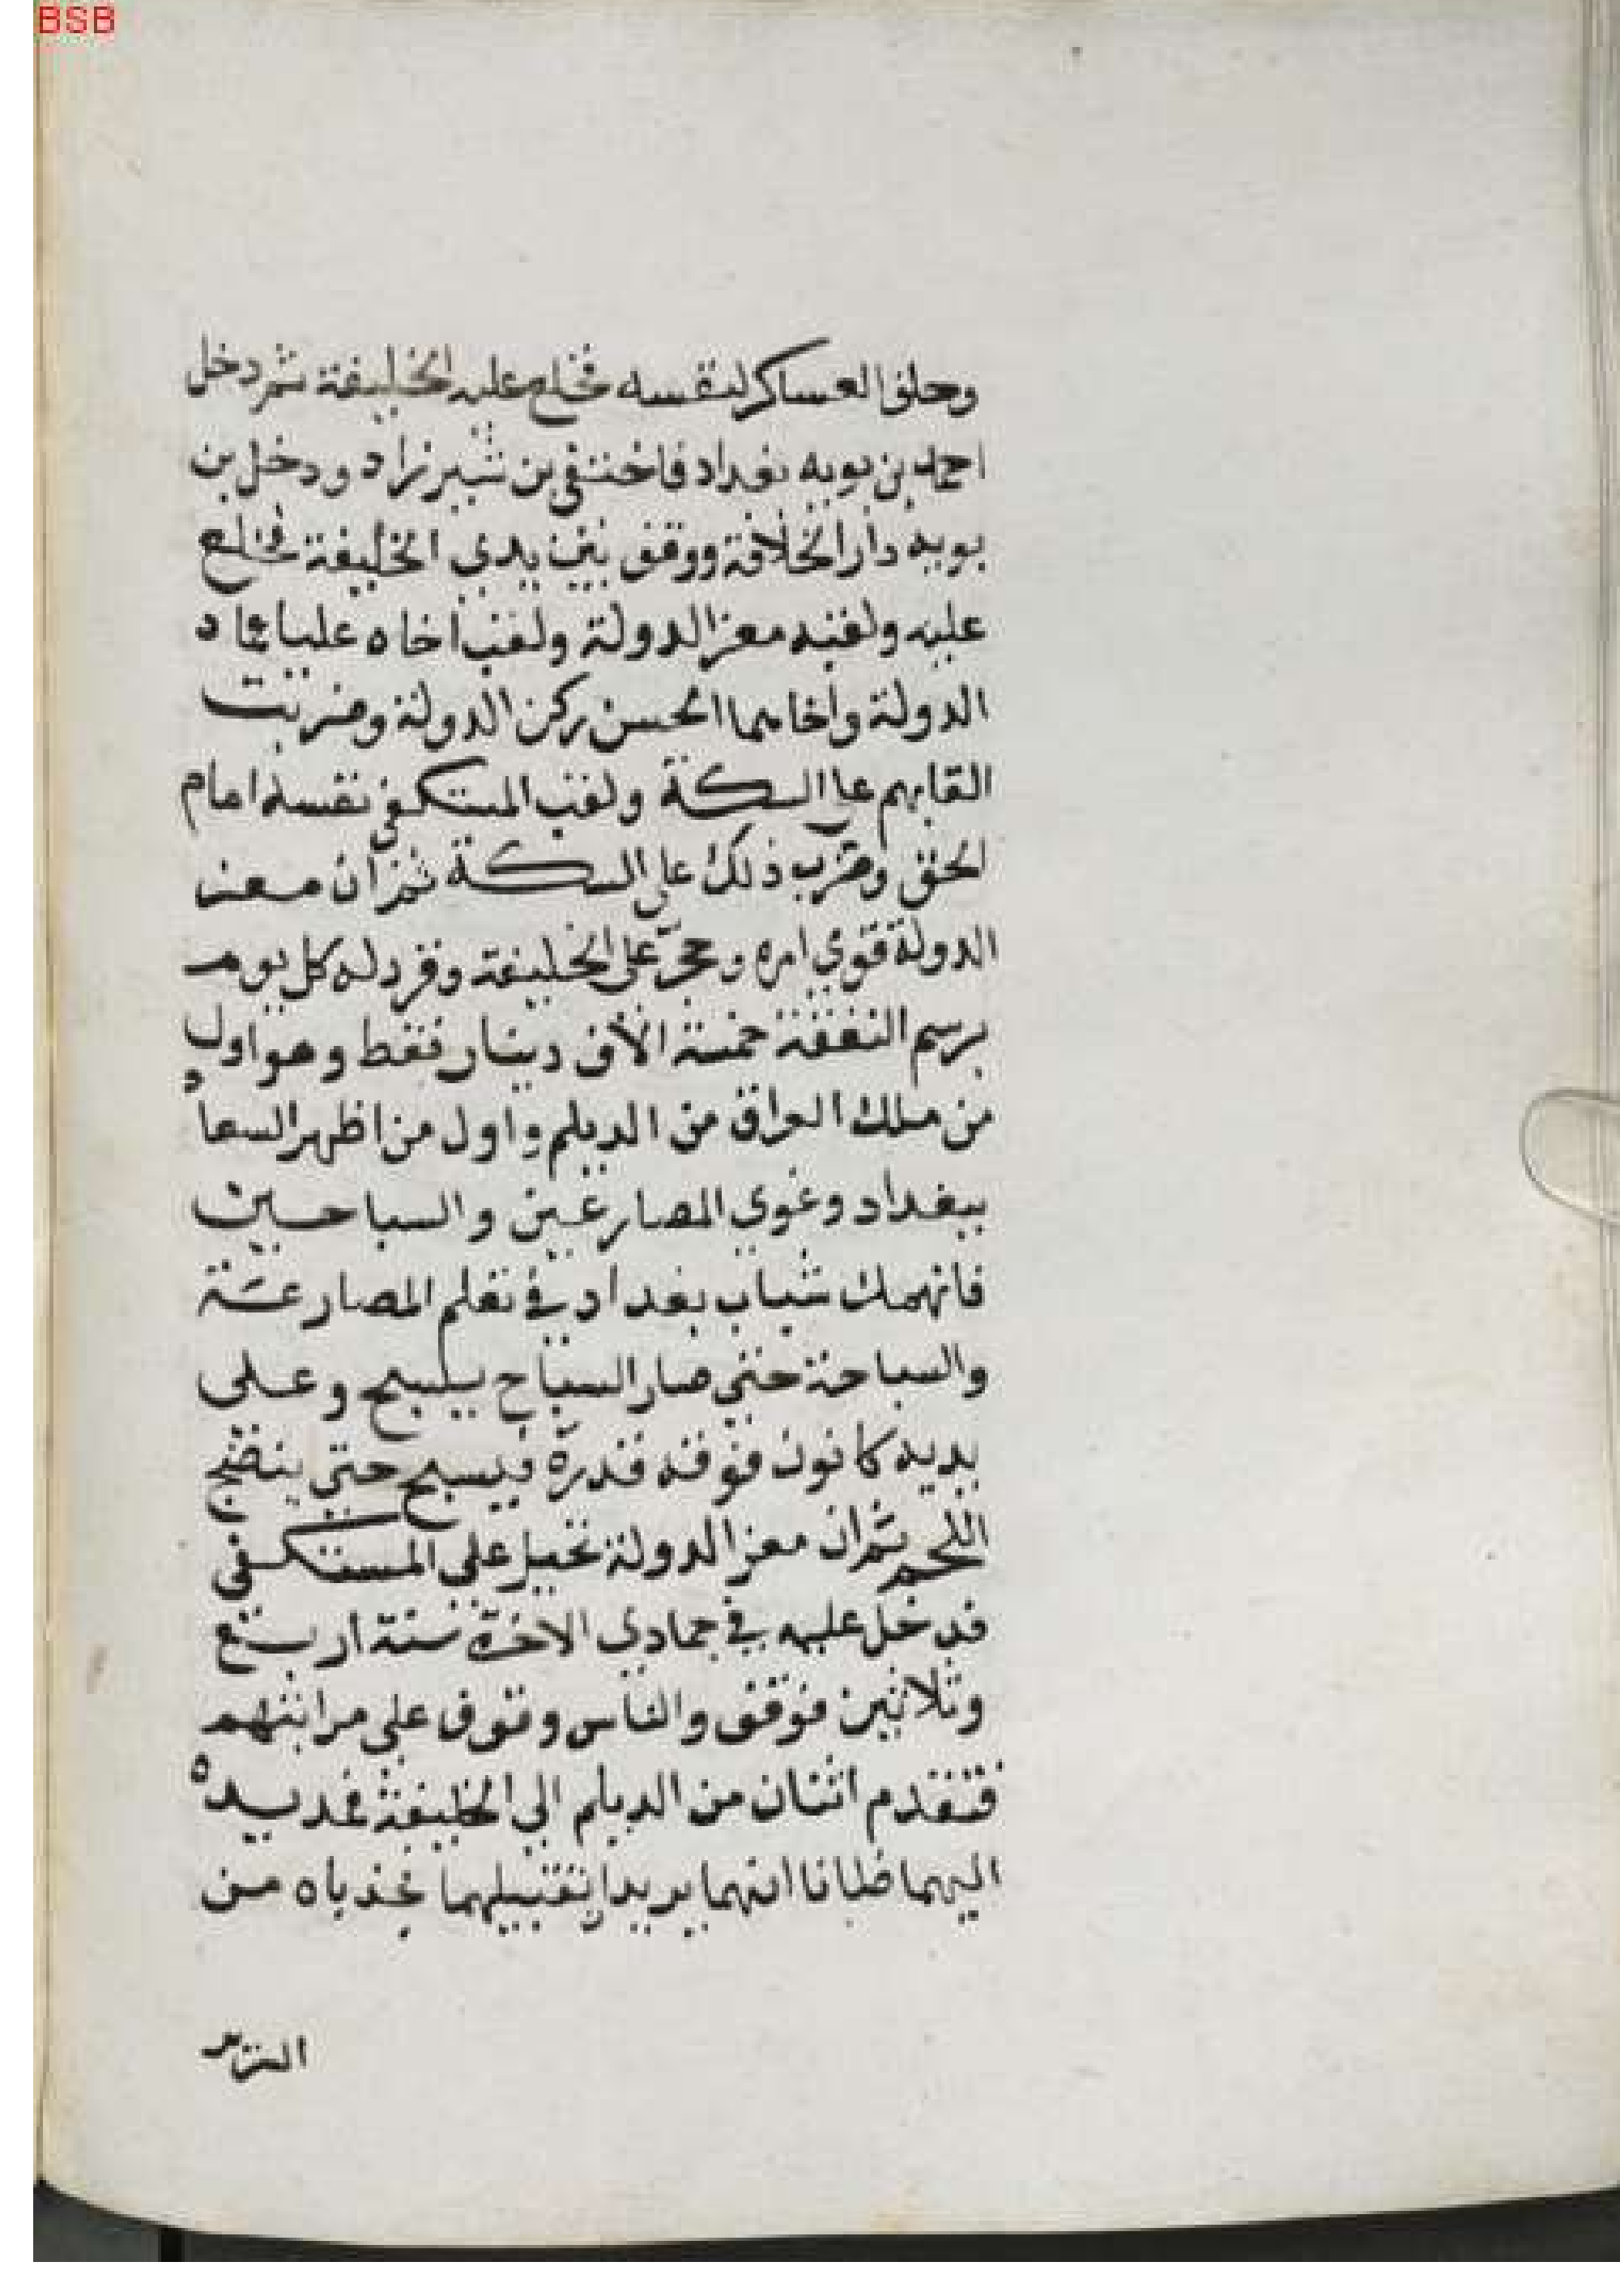 BSB
وحلف العساكر لنفسه فخلع عليه الخليفة ثم دخل
احمد بن بويه بغداد فاختفى بن شيرزاد ودخل بن
بويه دار الخلافة ووقف بين يدي الخليفة فخلع
عليه ولقبه معز الدولة ولقب اخاه عليا عماد
الدولة وأخاهما الحسن ركن الدولة وضربت
القابهم على السكة ولقب المستكفي نفسه امام
الحق وضرب ذلك على السكة ثم أن معز
الدولة قوي امره وحجر على الخليفة وقرر له كل يوم
برسم النفقة خمسة الاف دينار فقط وهو اول
من ملك العراق من الديلم واول من اظهر السعاه
ببغداد وغوي المصارعين والسباحين
فانهمك شباب بغداد في تعلم المصارعة
والسباحة حتي صار السباح يسبح وعلى
يديه كانون فوقه قدرة فيسبح حتي ينضج
اللحم ثم ان معز الدولة تخيل علي المستكفي
فدخل عليه في جمادي الاخرة سنة أربع
وثلاثين فوقف والناس وقوف علي مراتبهم
فتقدم اثنان من الديلم الي الخليفة فمد يده
اليهما ظانا انهما يريدا تقبيلهما فجذباه من